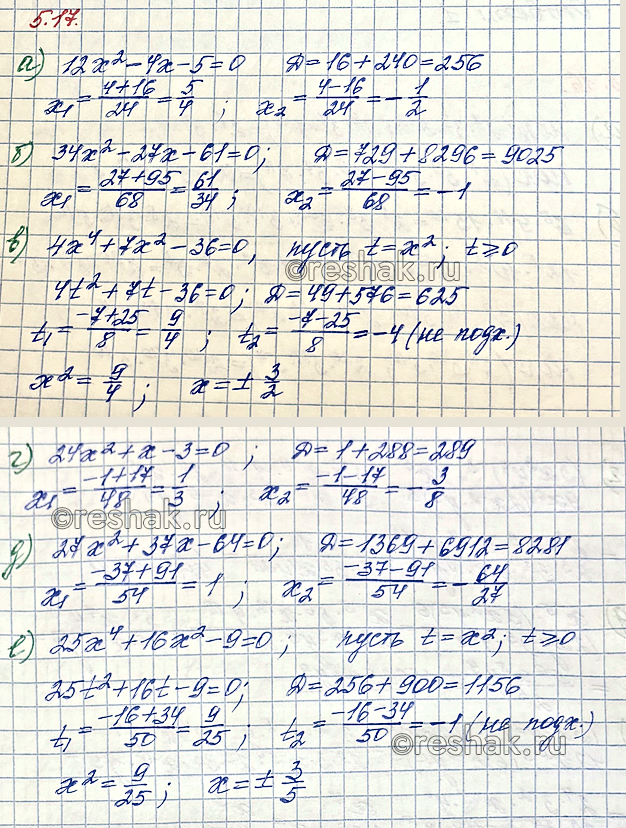 5.17.
а) 12x² - 4x - 5 = 0    D = 16 + 240 = 256
x₁ = (4+16)/24 = 5/4 ;   x₂ = (4-16)/24 = -1/2
б) 34x² - 27x - 61 = 0;    D = 729 + 8296 = 9025
x₁ = (27+95)/68 = 61/34 ;   x₂ = (27-95)/68 = -1
в) 4x⁴ + 7x² - 36 = 0,   пусть t = x²; t ≥ 0
©reshak.ru
4t² + 7t - 36 = 0;   D = 49 + 576 = 625
t₁ = (-7+25)/8 = 9/4 ;   t₂ = (-7-25)/8 = -4 (не подх.)
x² = 9/4 ;   x = ± 3/2
г) 24x² + x - 3 = 0 ;   D = 1 + 288 = 289
x₁ = (-1+17)/48 = 1/3 ;   x₂ = (-1-17)/48 = -3/8
©reshak.ru
д) 27x² + 37x - 64 = 0;   D = 1369 + 6912 = 8281
x₁ = (-37+91)/54 = 1 ;   x₂ = (-37-91)/54 = -64/27
е) 25x⁴ + 16x² - 9 = 0 ;   пусть t = x²; t ≥ 0
25t² + 16t - 9 = 0;   D = 256 + 900 = 1156
t₁ = (-16+34)/50 = 9/25 ;   t₂ = (-16-34)/50 = -1 (не подх.)
©reshak.ru
x² = 9/25 ;   x = ± 3/5